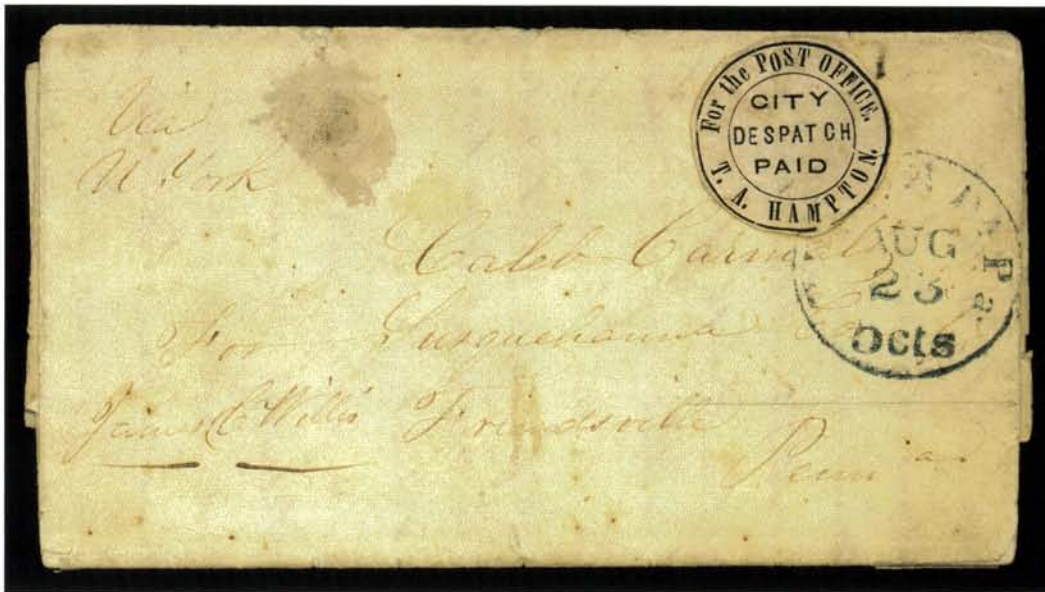 Via
N York
For the POST OFFICE.
CITY
DESPATCH
PAID
T. A. HAMPTON.
Pa
AUG
23
5cts
Caleb
For Susquehanna
James C Willis Friendsville
Penn